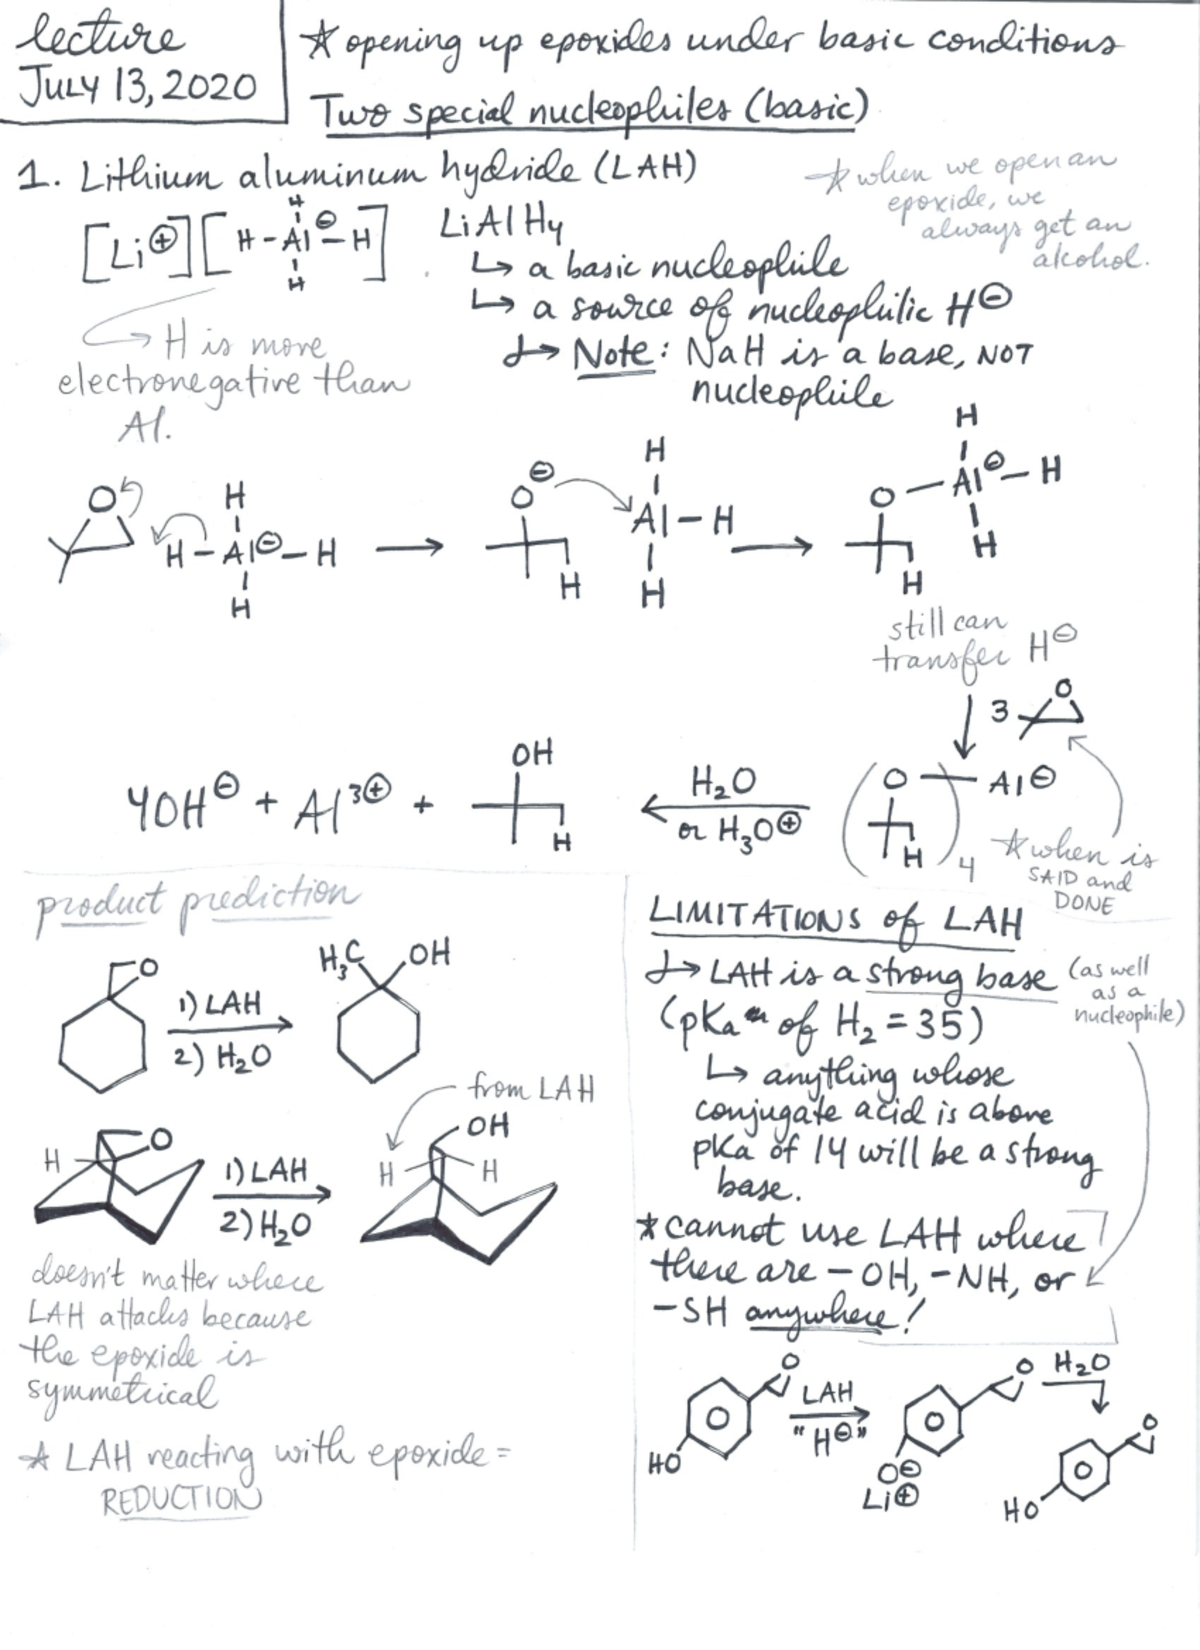 lecture
JULY 13, 2020
☆ opening up epoxides under basic conditions
Two special nucleophiles (basic)
1. Lithium aluminum hydride (LAH)
☆ when we open an
epoxide, we
always get an
alcohol.
[Li⊕][H-Al⊖-H]
H
H
LiAlH4
↳ a basic nucleophile
↳ a source of nucleophilic H⊖
↳ Note: NaH is a base, NOT
nucleophile
→ H is more
electronegative than
Al.
O
H
H-Al⊖-H
H
→
O⊖
H
H
Al-H
H
→
H
O-Al⊖-H
H
H
still can
transfer H⊖
↓ 3
O
(O Al⊖
H)4
☆ when is
SAID and
DONE
H2O
or H3O⊕
4OH⊖ + Al3⊕ +
OH
H
product prediction
O
1) LAH
2) H2O
H3C OH
from LAH
H O
1) LAH
2) H2O
OH
H H
doesn't matter where
LAH attacks because
the epoxide is
symmetrical
☆ LAH reacting with epoxide =
REDUCTION
LIMITATIONS of LAH
↳ LAH is a strong base (as well
as a
nucleophile)
(pKa of H2 = 35)
↳ anything whose
conjugate acid is above
pKa of 14 will be a strong
base.
*cannot use LAH where
there are -OH, -NH, or
-SH anywhere!
O
HO
LAH
"H⊖"
O
O⊖
Li⊕
H2O
O
HO